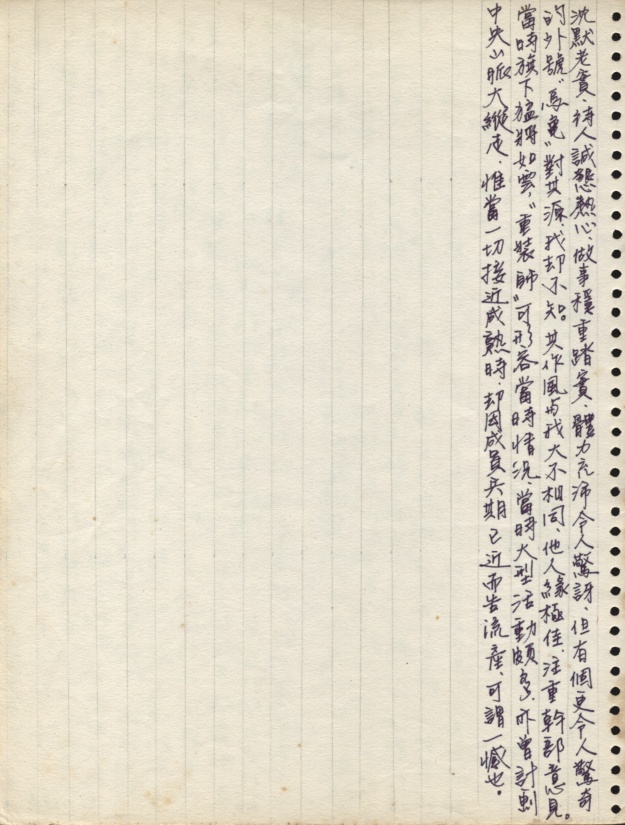 沈默老實、待人誠懇熱心、做事穩重踏實、體力充沛令人驚訝、但有個更令人驚奇
的外號"馬東"對其源、我却不知。其作風與我大不相同、他人緣極佳、注重幹部意見。
當時旗下猛將如雲、"重裝師"可形容當時情況、當時大型活動頗多、亦曾計劃
中央山脈大縱走、惟當一切接近成熟時、却因成員兵期已近而告流產、可謂一憾也。